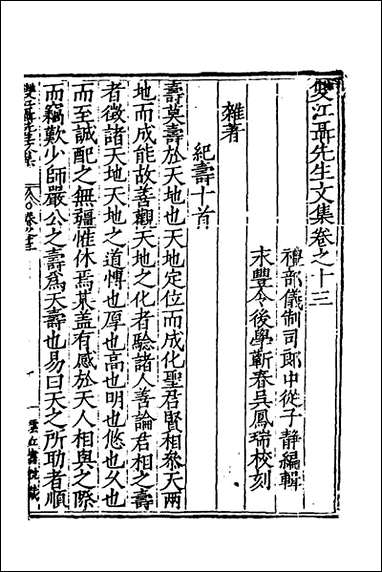 雙江聶先生文集卷之十三
禮部儀制司郎中從子靜編輯
永豐令後學蘄春吳鳳瑞校刻
雜著
紀壽十首
壽莫壽於天地也天地定位而成化聖君賢相叅天兩
地而成能故善觀天地之化者驗諸人善論君相之壽
者徵諸天地天地之道博也厚也高也明也悠也久也
而至誠配之無疆惟休焉某盖有感於天人相與之際
而竊歎少師嚴公之壽爲天壽也易曰天之所助者順
雙江聶先生文集
卷之十三
一
雲丘書院藏